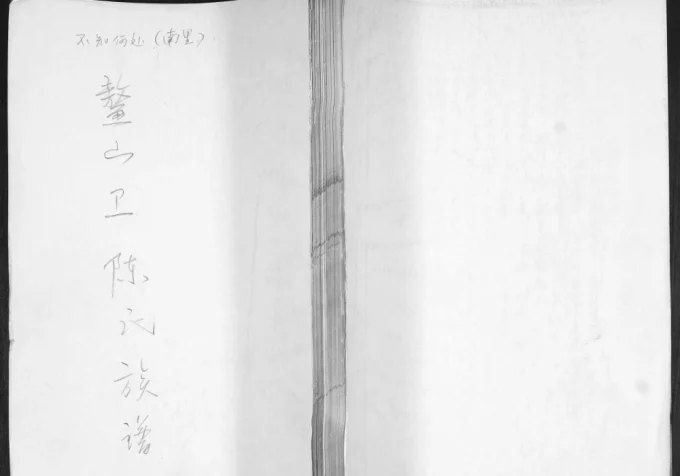 不知何处(南里)
鳌山卫陈氏族谱